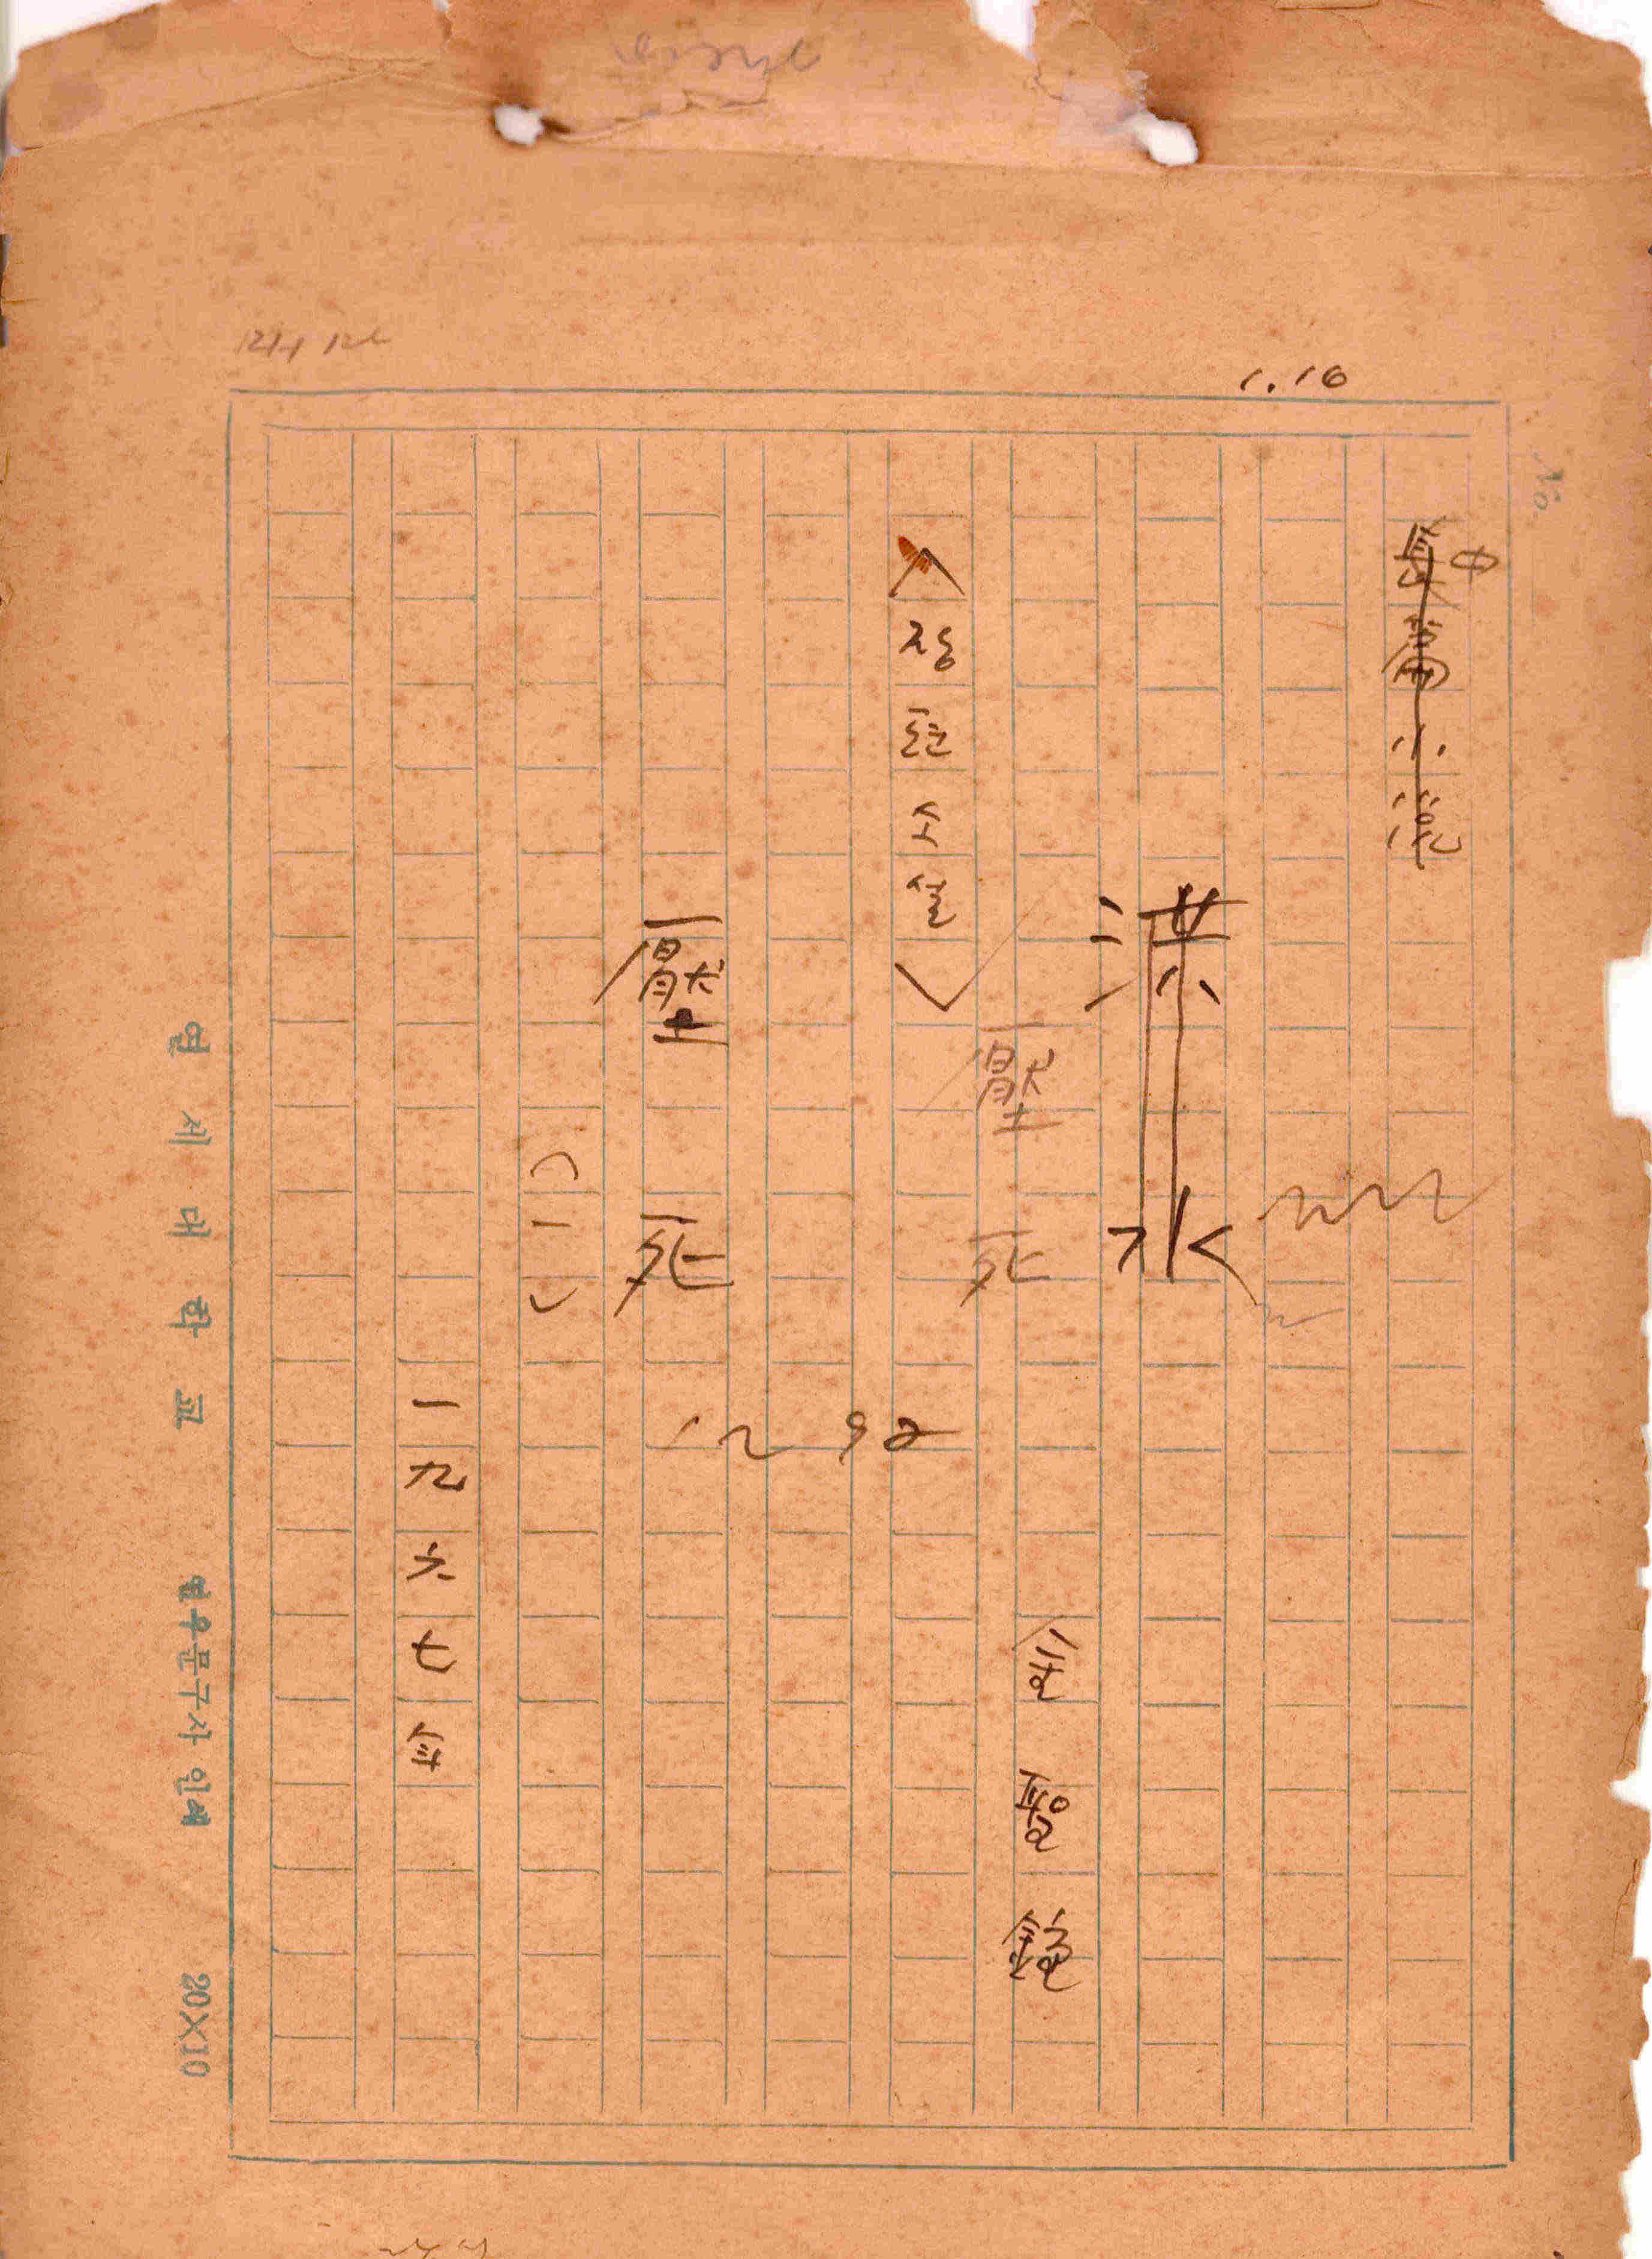 1.16
No.
中
長篇小說
洪水
壓死
金聖鐘
<장편소설>
壓死
(一)
一九六七年
연세대학교
연우문구사 인쇄
20×10